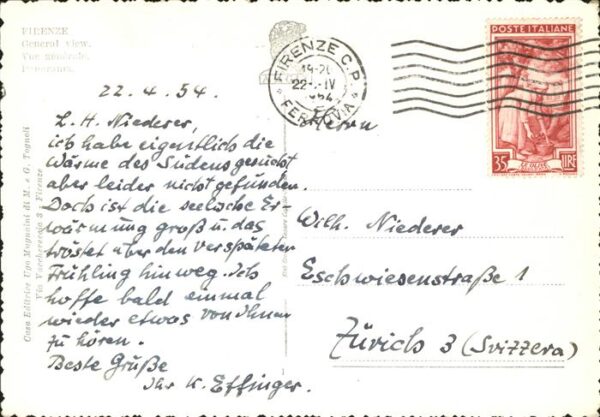 FIRENZE
General view.
Vue générale.
Panorama.
FIRENZE C.P.
19-20
22.-IV
1954
FERROVIA
POSTE ITALIANE
35 LIRE
22. 4. 54.
L. H. Niederer,
ich habe eigentlich die
Wärme des Südens gesucht
aber leider nicht gefunden.
Doch ist die seelische Er-
wärmung groß u. das
tröstet über den verspäteten
Frühling hinweg. Ich
hoffe bald einmal
wieder etwas von Ihnen
zu hören.
Beste Grüße
Ihr K. Effinger.
Herrn
Wilh. Niederer
Eschwiesenstraße 1
Zürich 3 (Svizzera)
Casa Editrice Ugo Mugnaini di M. e G. Tognoli
Via Vacchereccia 3 - Firenze